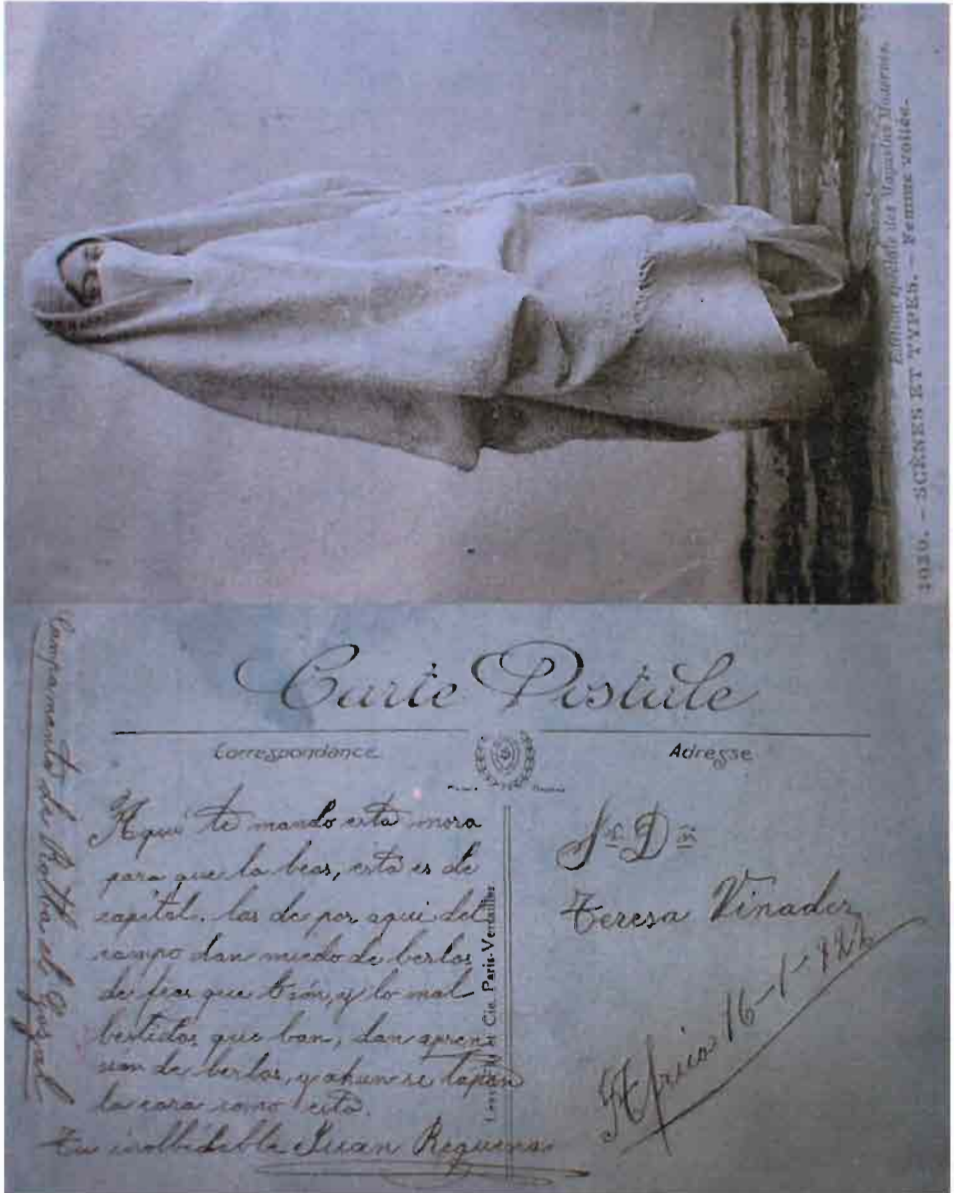 Edition spéciale des Magasins Modernes.
1030. - SCÈNES ET TYPES. - Femme voilée.
Carte Postale
Correspondance
Adresse
Campamento de Rotba el Gozal
Aqui te mando esta mora
para que la beas, esta es de
capital. las de por aqui del
campo dan miedo de berlas
de feas que són, y lo mal
bestidas que ban, dan apren
sión de berlas, y ahun se tapan
la cara como esta.
Tu inolbidable Juan Requena
Cie. Paris-Versailles
Sª Dª
Teresa Vinader
Africa 16-1-922